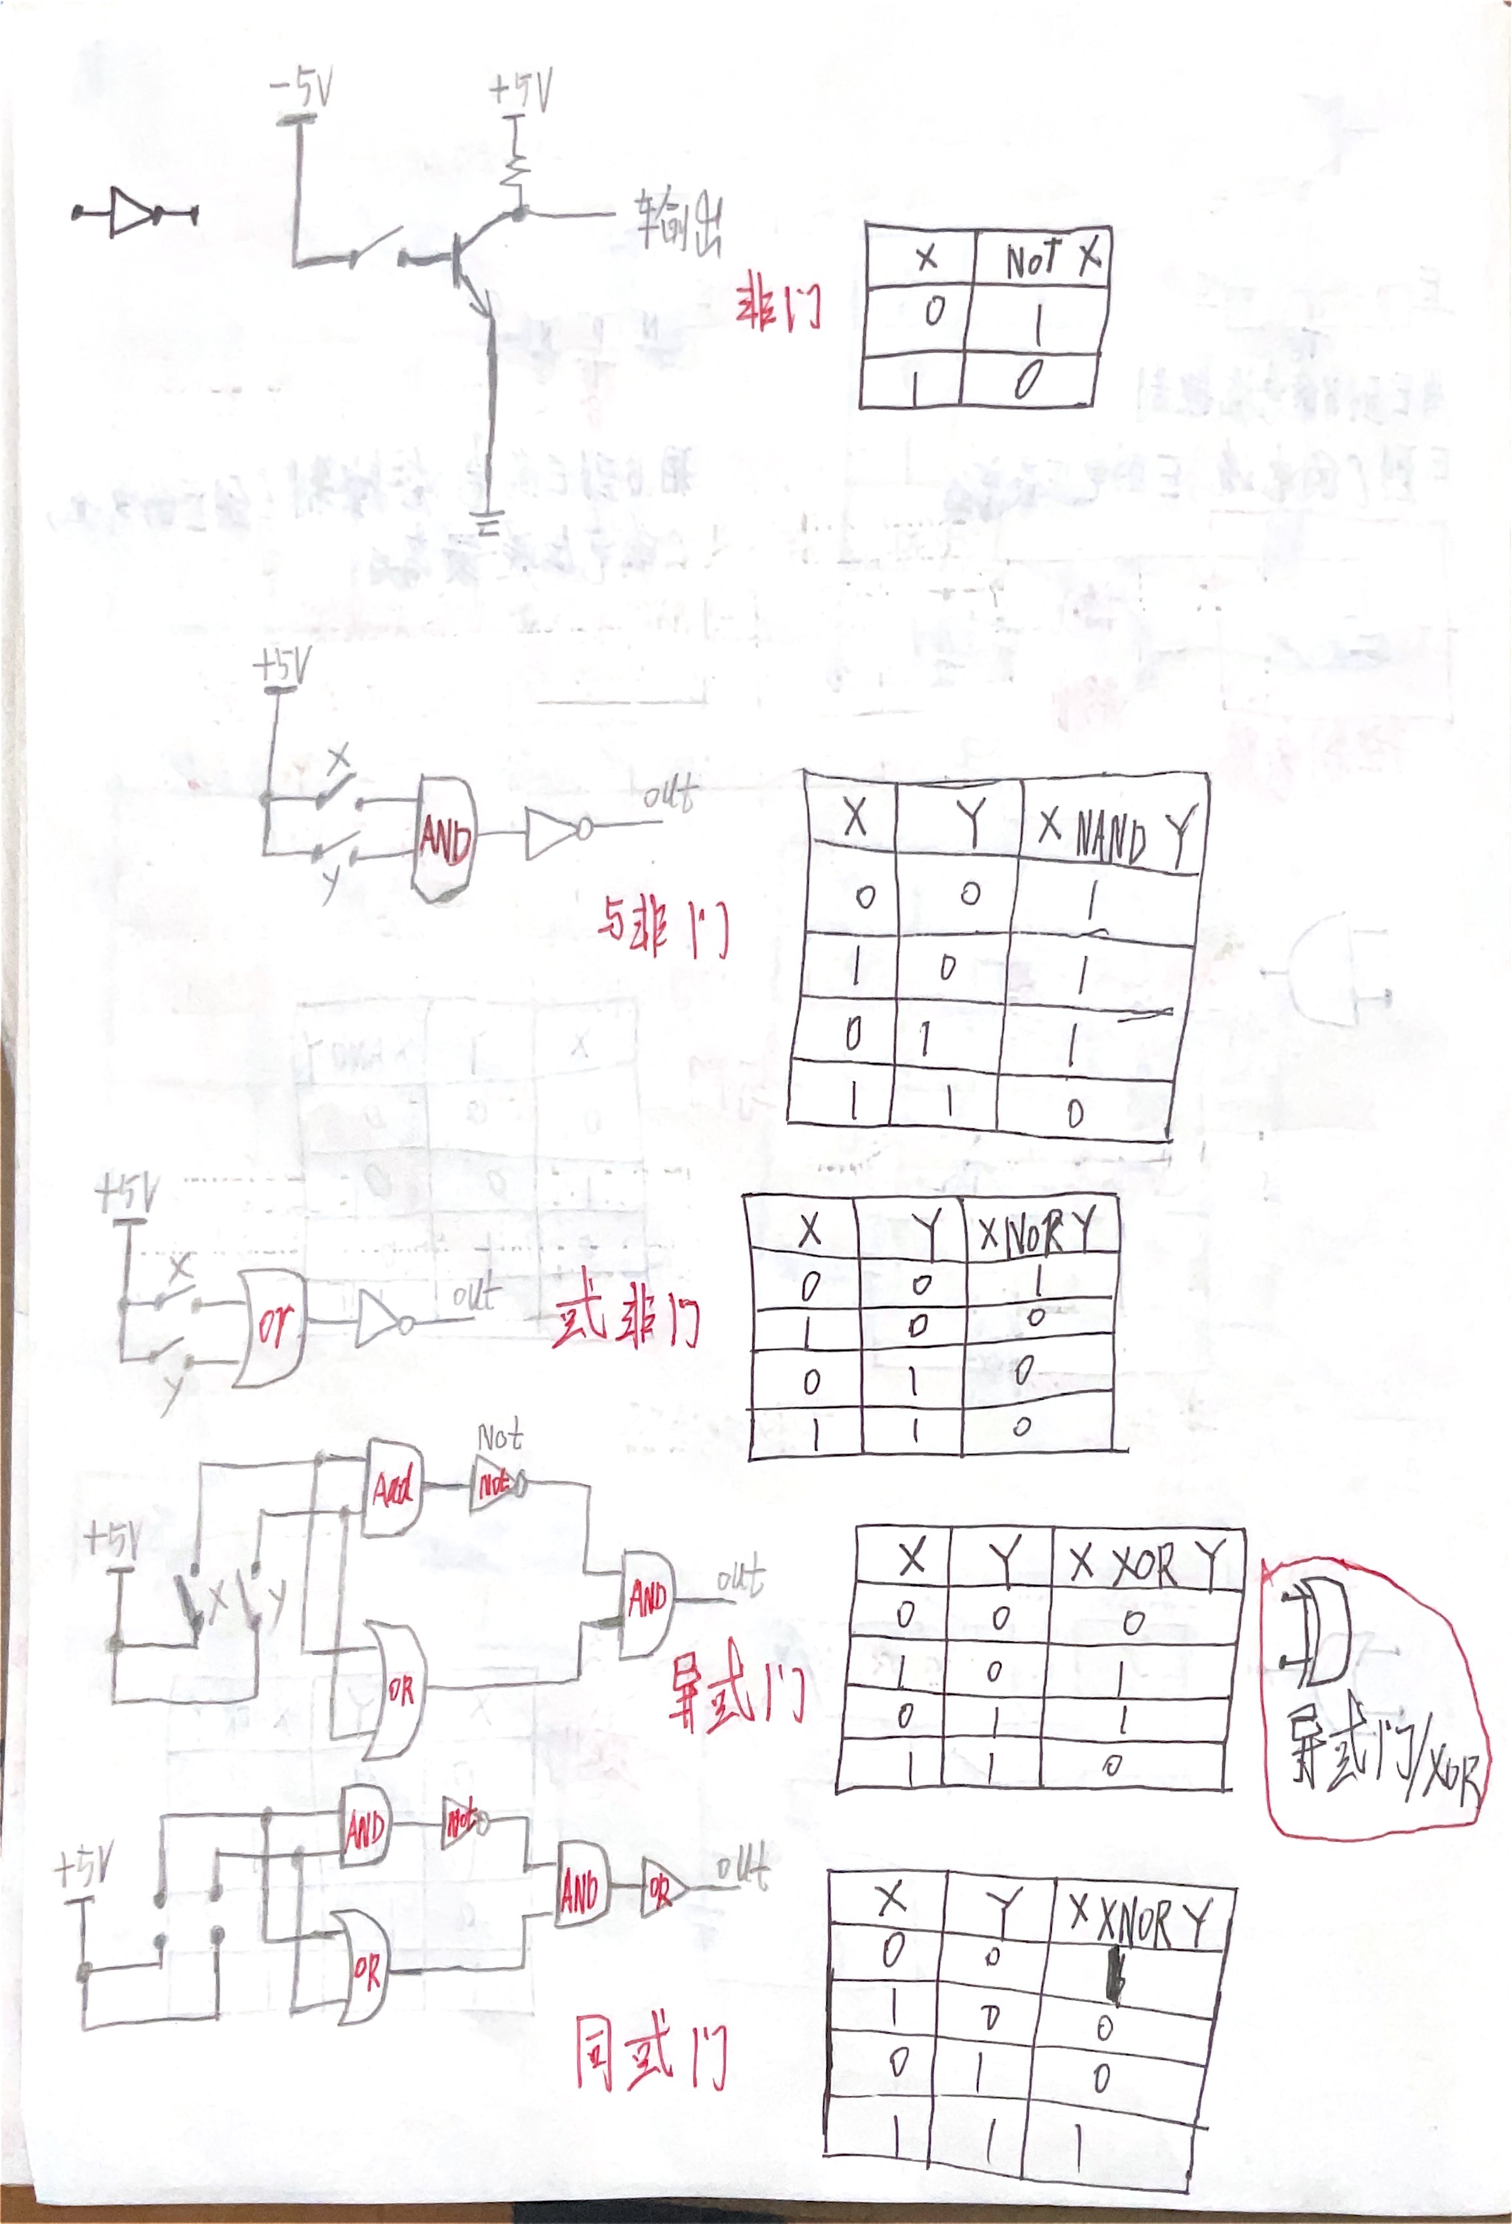 -5V
+5V
输出
非门
X NOT X
0 1
1 0
+5V
X
Y
AND
out
与非门
X Y X NAND Y
0 0 1
1 0 1
0 1 1
1 1 0
+5V
X
Y
or
out
式非门
X Y X NOR Y
0 0 1
1 0 0
0 1 0
1 1 0
+5V
X Y
And
Not
Not
OR
AND
out
异式门
X Y X XOR Y
0 0 0
1 0 1
0 1 1
1 1 0
异式门/XOR
+5V
AND
Not
OR
AND
OR
out
同式门
X Y X XNOR Y
0 0 1
1 0 0
0 1 0
1 1 1